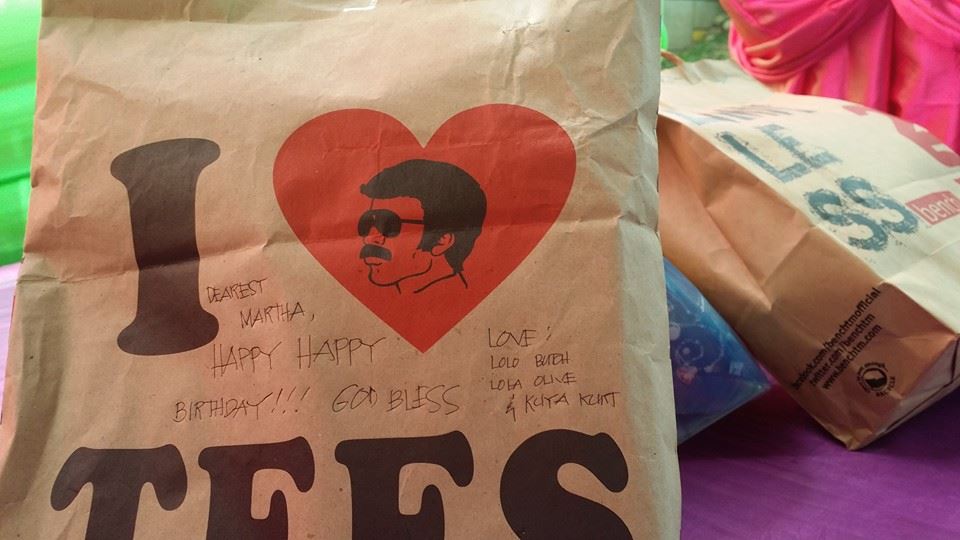 I
DEAREST
MARTHA,
HAPPY HAPPY
BIRTHDAY!!! GOD BLESS
LOVE:
LOLO BUTCH
LOLA OLIVE
& KUYA KURT
TEES
LE
SS
bench
facebook.com/benchtmofficial
twitter.com/benchtm
www.benchtm.com